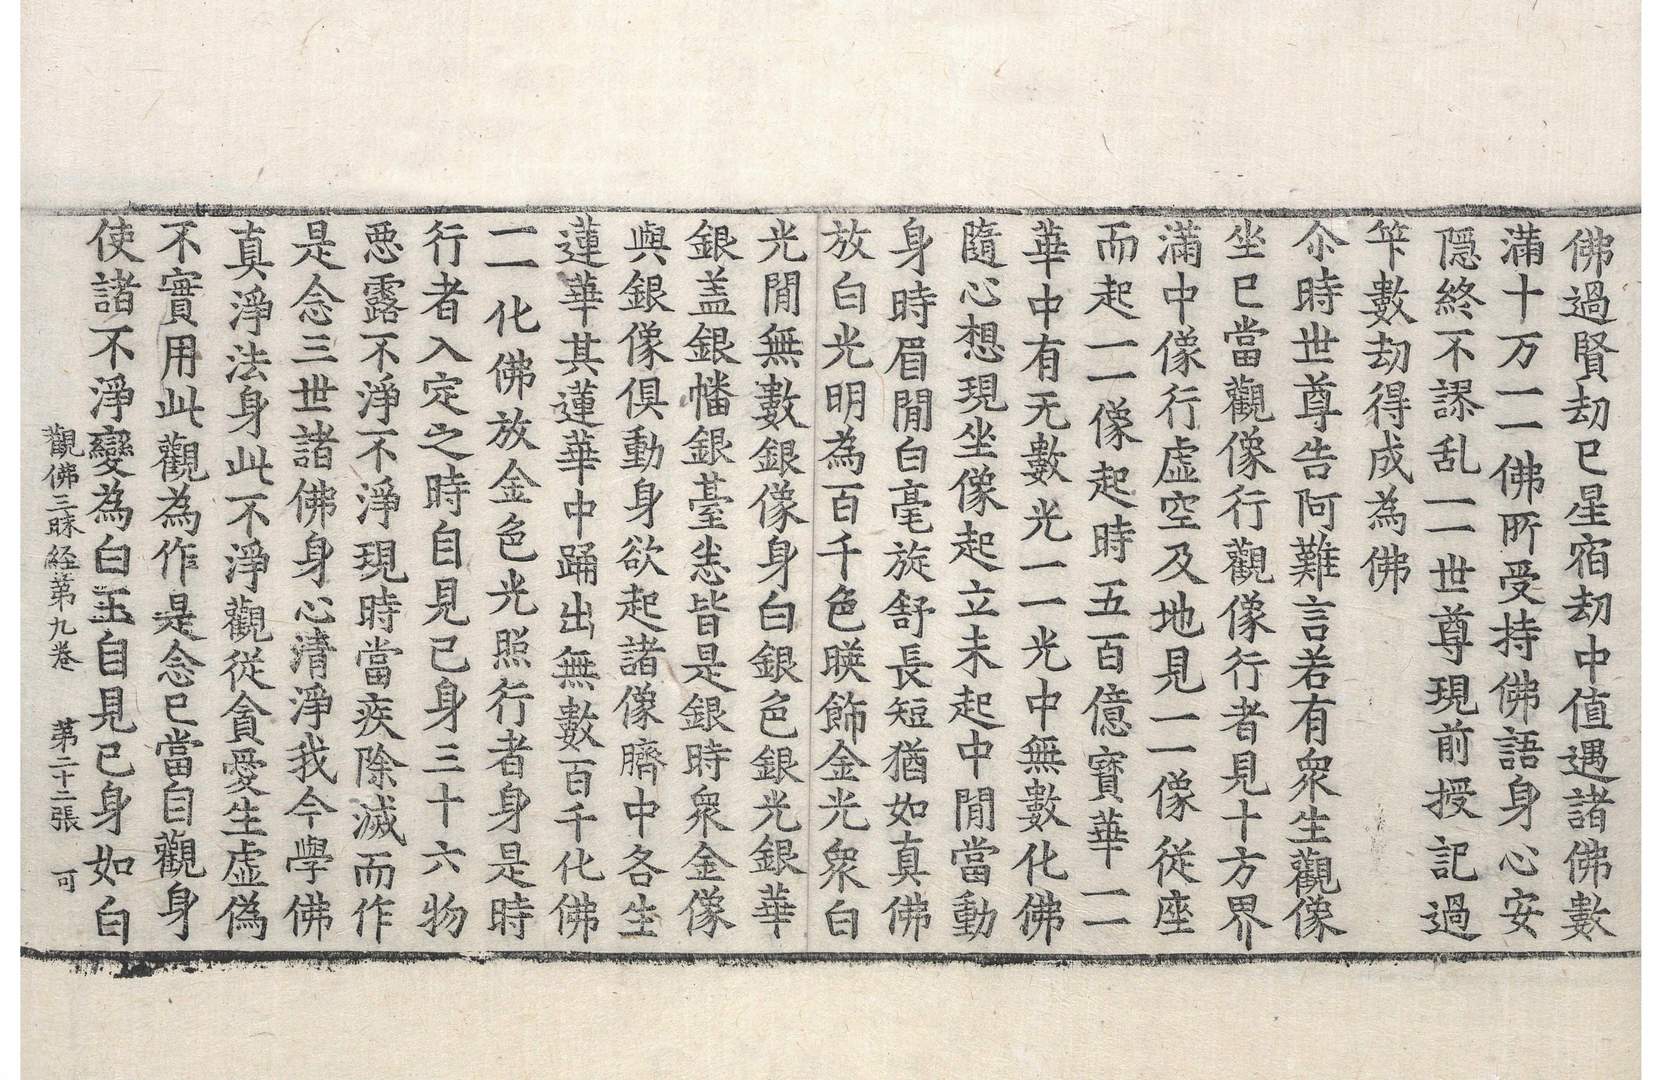 佛過賢劫已星宿劫中值遇諸佛數
滿十万一一佛所受持佛語身心安
隱終不謬乱一一世尊現前授記過
笇數劫得成為佛
尒時世尊告阿難言若有衆生觀像
坐已當觀像行觀像行者見十方界
滿中像行虛空及地見一一像從座
而起一一像起時五百億寶華一一
華中有无數光一一光中無數化佛
隨心想現坐像起立未起中閒當動
身時眉閒白毫旋舒長短猶如真佛
放白光明為百千色暎飾金光衆白
光閒無數銀像身白銀色銀光銀華
銀盖銀幡銀臺悉皆是銀時衆金像
與銀像俱動身欲起諸像臍中各生
蓮華其蓮華中踊出無數百千化佛
一一化佛放金色光照行者身是時
行者入定之時自見已身三十六物
惡露不淨不淨現時當疾除滅而作
是念三世諸佛身心清淨我今學佛
真淨法身此不淨觀從貪愛生虛偽
不實用此觀為作是念已當自觀身
使諸不淨變為白玉自見已身如白
觀佛三昧経第九卷 第二十二張 可